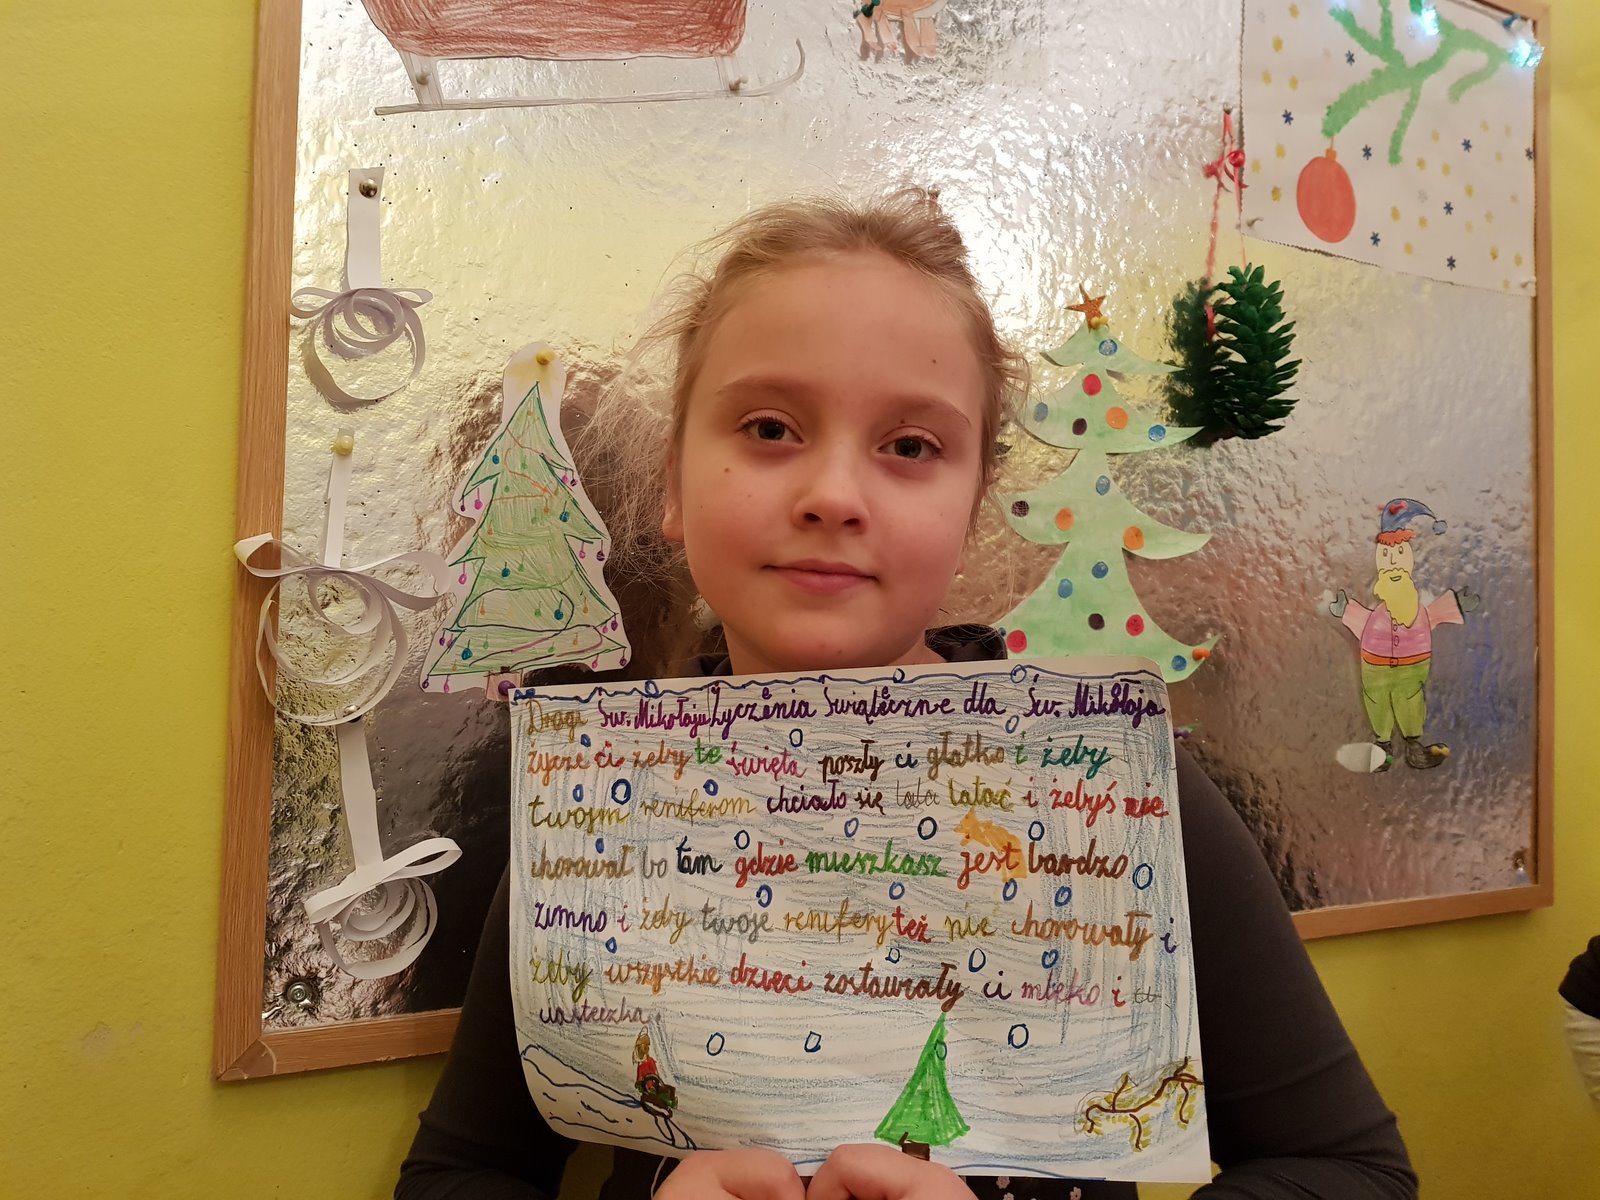 Drogi Św. Mikołaju Życzenia Świąteczne dla Św. Mikołaja
życze ci żeby te święta poszły ci głatko i żeby
twojm reniferom chciało się lata latać i żebyś nie
chorował bo tam gdzie mieszkasz jest bardzo
zimno i żeby twoje renifery też nie chorowały i
żeby wszystkie dzieci zostawiały ci mleko i
ciasteczka.